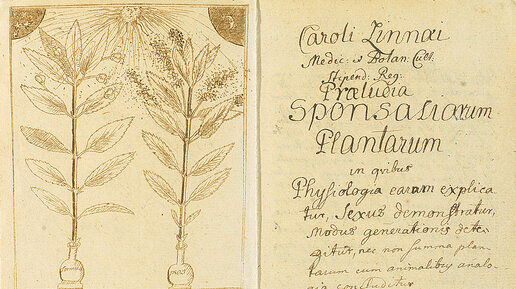 Caroli Linnæi
Medic: & Botan. Cult.
Stipend: Reg.
Præludia
Sponsaliorum
Plantarum
in qvibus
Physiologia earum explica
tur, Sexus demonstratur,
Modus generationis dete-
gitur, nec non summa plan-
tarum cum animalibus analo-
gia concluditur
mas